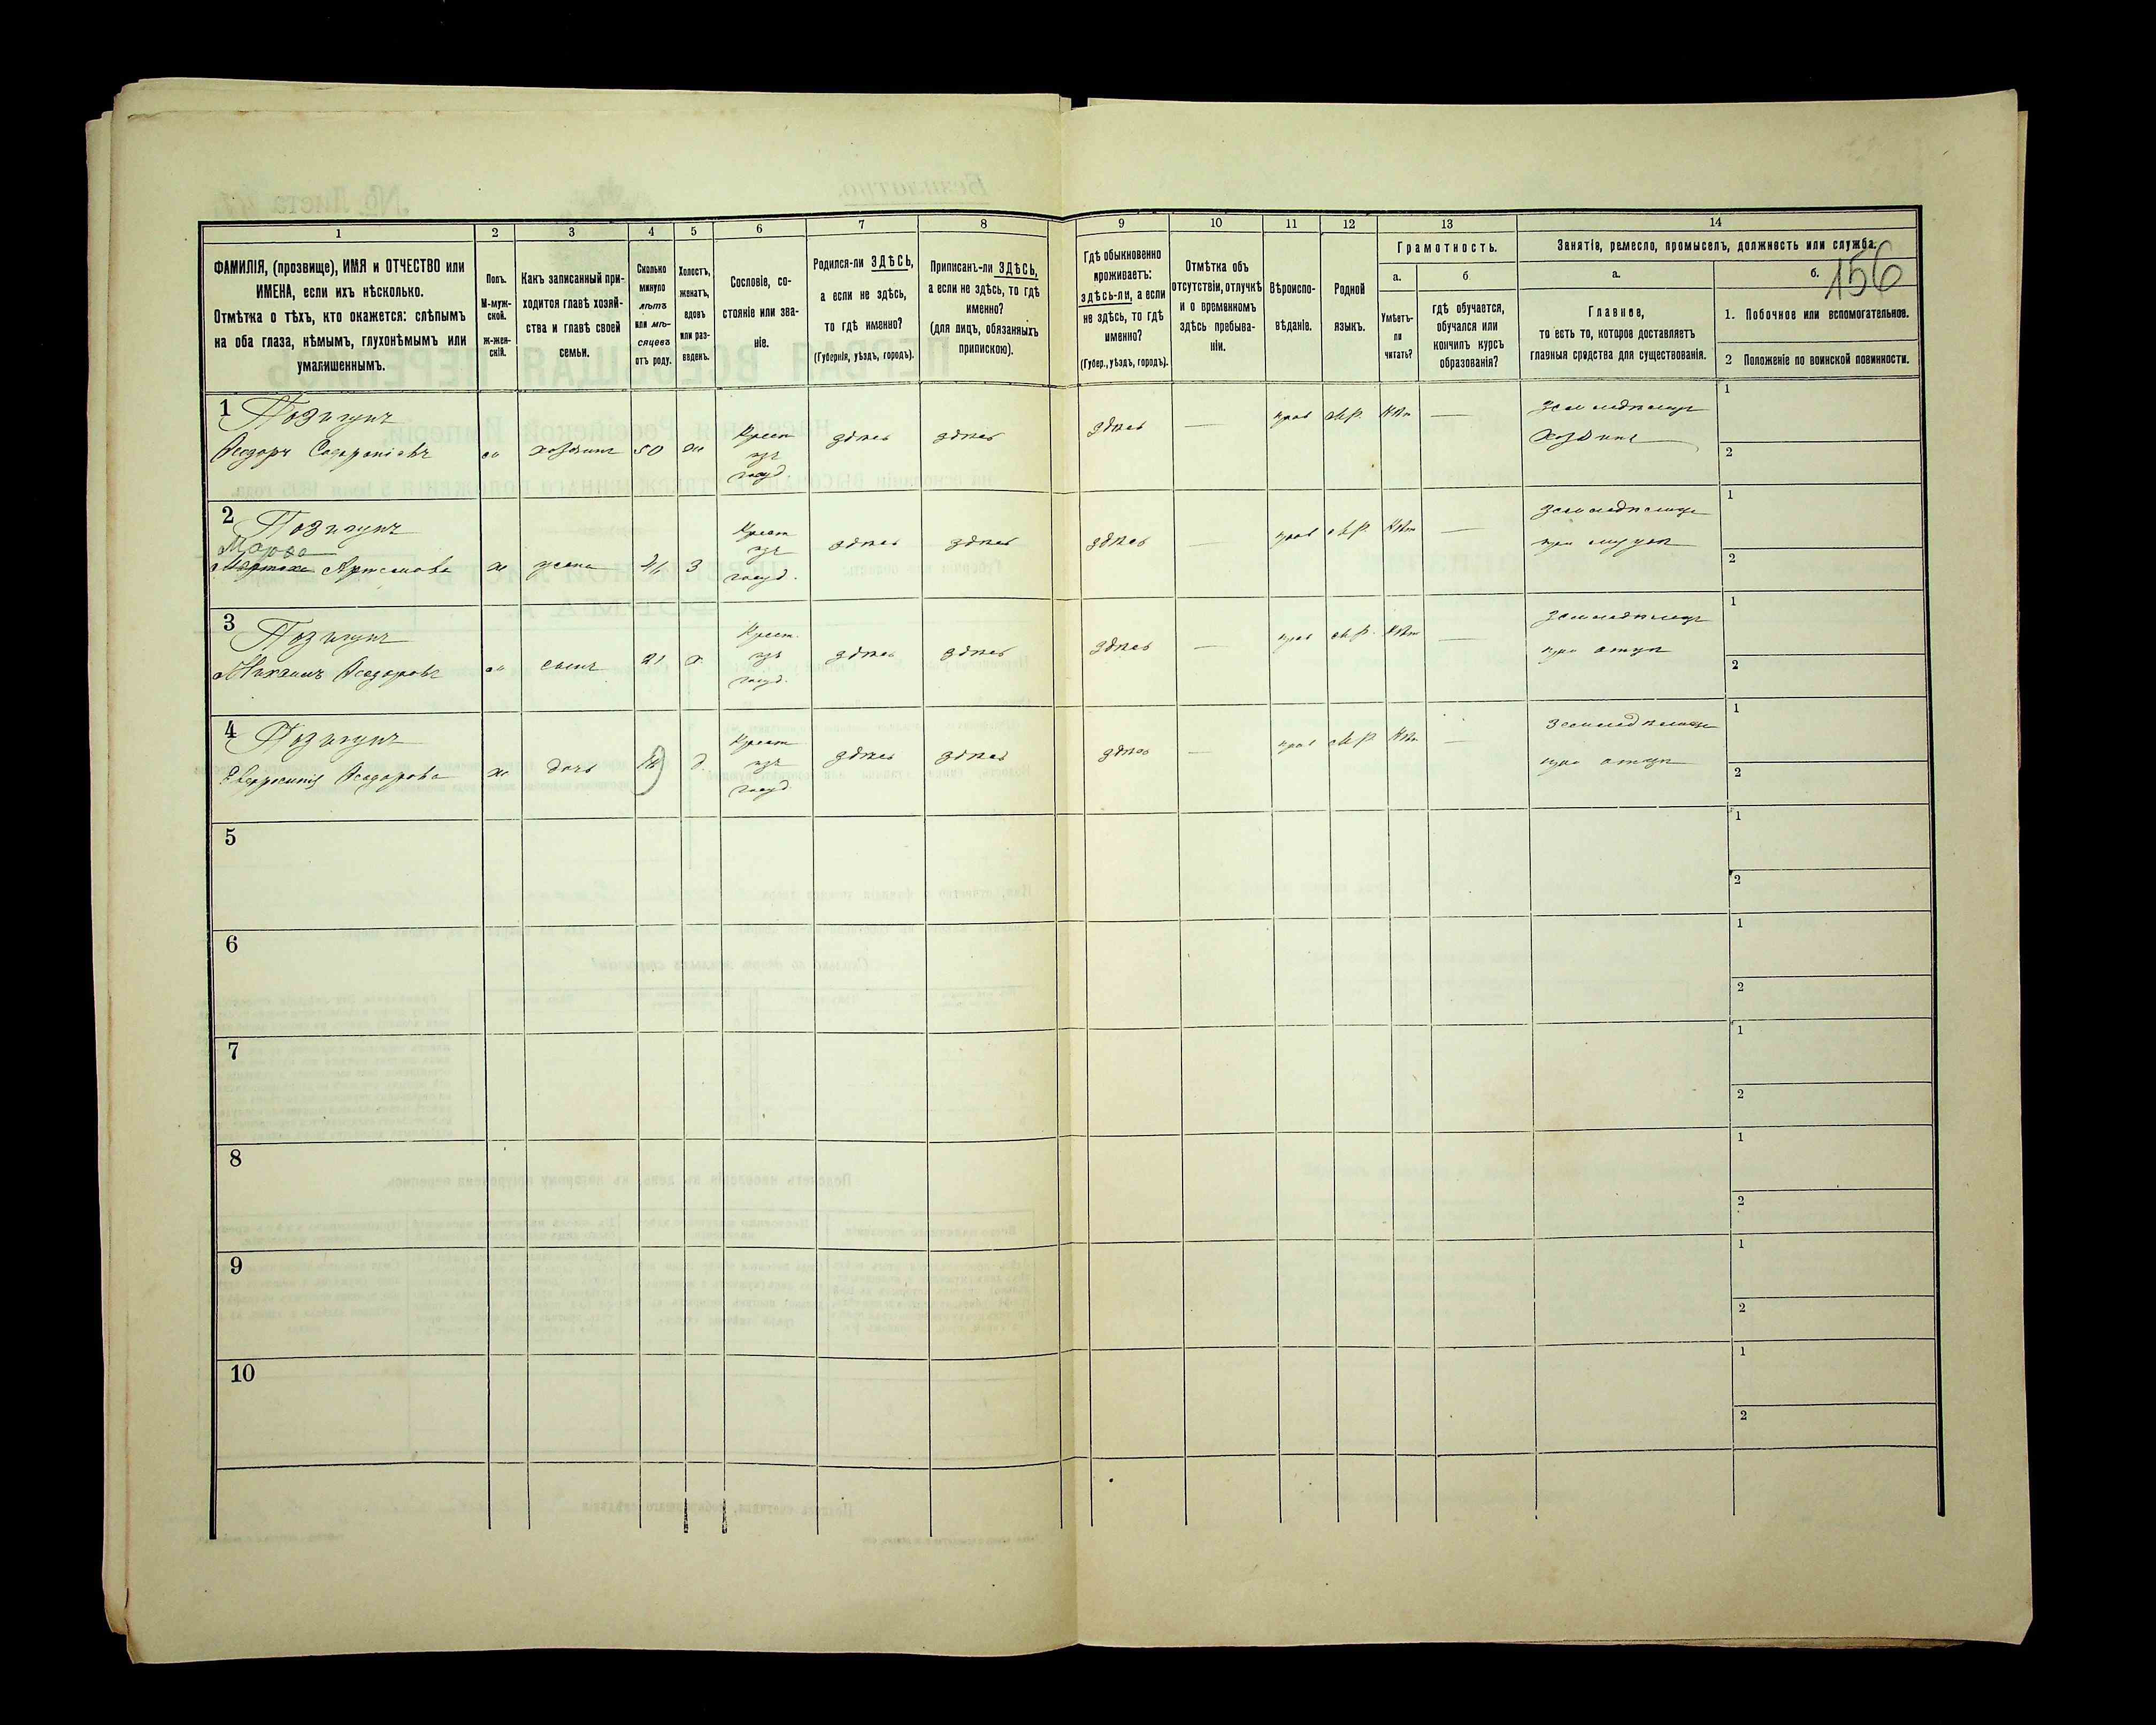 1 2 3 4 5 6 7 8 9 10 11 12 13 14
ФАМИЛІЯ, (прозвище), ИМЯ и ОТЧЕСТВО или
ИМЕНА, если ихъ нѣсколько.
Отмѣтка о тѣхъ, кто окажется: слѣпымъ
на оба глаза, нѣмымъ, глухонѣмымъ или
умалишеннымъ.
Полъ.
М-муж-
ской.
Ж-жен-
скій.
Какъ записанный при-
ходится главѣ хозяй-
ства и главѣ своей
семьи.
Сколько
минуло
лѣтъ
или мѣ-
сяцевъ
отъ роду.
Холостъ,
женатъ,
вдовъ
или раз-
веденъ.
Сословіе, со-
стояніе или зва-
ніе.
Родился-ли ЗДѢСЬ,
а если не здѣсь,
то гдѣ именно?
(Губернія, уѣздъ, городъ).
Приписанъ-ли ЗДѢСЬ,
а если не здѣсь, то гдѣ
именно?
(для лицъ, обязанныхъ
припискою).
Гдѣ обыкновенно
проживаетъ:
здѣсь-ли, а если
не здѣсь, то гдѣ
именно?
(Губер., уѣздъ, городъ).
Отмѣтка объ
отсутствіи, отлучкѣ
и о временномъ
здѣсь пребыва-
ніи.
Вѣроиспо-
вѣданіе.
Родной
языкъ.
Грамотность.
а.
Умѣетъ-
ли
читать?
б
гдѣ обучается,
обучался или
кончилъ курсъ
образованія?
Занятія, ремесло, промыселъ, должность или служба.
а.
Главное,
то есть то, которое доставляетъ
главныя средства для существованія.
б.
156
1. Побочное или вспомогательное.
2 Положеніе по воинской повинности.
1 Позигунъ
Ѳедоръ м хозяинъ 50 ж Крест изъ госуд. здѣсь здѣсь здѣсь — прав М.р. Нѣт — Земледѣлецъ
Хозяинъ
1
2
2 Позигунъ
Марѳа
Артемова ж жена З Крест изъ госуд. здѣсь здѣсь здѣсь — прав М.р. Нѣт —
при мужѣ
1
2
3 Позигунъ
Михаилъ Ѳедоровъ м сынъ 21 х Крест. изъ госуд. здѣсь здѣсь здѣсь — прав М.р. Нѣт —
при отцѣ
1
2
4 Позигунъ
Евфросинія Ѳедорова ж дочь Д Крест изъ госуд здѣсь здѣсь здѣсь — прав М.р. Нѣт —
при отцѣ
1
2
5
1
2
6
1
2
7
1
2
8
1
2
9
1
2
10
1
2